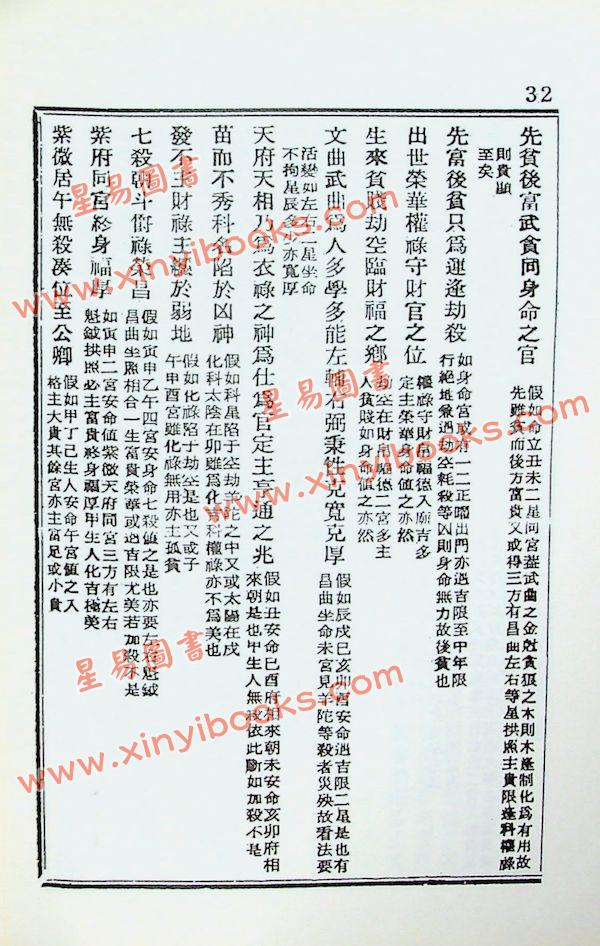 32
先貧後富武貪同身命之宮
假如命立丑未二星同宮蓋武曲之金尅貪狼之木則木逢制化為有用故
先雖貧而後方富貴又或得三方有昌曲左右等星拱照主貴限逢科權祿
則貴顯
至矣
先富後貧只為運逢劫殺
如身命宮或有一二正曜出門亦遇吉限至中年限
行絕地兼遇劫空耗殺等凶則身命無力故後貧也
出世榮華權祿守財官之位
權祿守財官福德入廟吉多
定主榮華身命值之亦然
生來貧賤劫空臨財福之鄉
劫空在財帛福德二宮多主
人貧賤如身命值之亦然
文曲武曲為人多學多能左輔右弼秉性克寬克厚
假如辰戌巳亥卯酉安命遇吉限二星是也有
昌曲坐命未宮見羊陀等殺者災殃故看法要
活變如左右二星坐命
不拘星辰多少亦寬厚
天府天相乃為衣祿之神為仕為官定主亨通之兆
假如丑安命巳酉府相來朝未安命亥卯府相
來朝是也甲生人無殺依此斷如加殺不是
苗而不秀科名陷於凶神
假如科星陷于空劫羊陀之中又或太陽在戌
化科太陰在卯雖為化吉科權祿亦不為美也
發不主財祿主纏於弱地
假如化祿陷于空劫是也又或子
午申酉宮雖化祿無用亦主孤貧
七殺朝斗爵祿榮昌
假如寅申子午四宮安身命七殺值之是也亦要左右魁鉞
昌曲坐照相合一生富貴榮華或遇吉限尤美若加殺不是
紫府同宮終身福厚
如寅申二宮安命值紫微天府同宮三方有左右
魁鉞拱照必主富貴終身福厚甲生人化吉極美
紫微居午無殺湊位至公卿
假如甲丁己生人安命午宮值之入
格主大貴其餘宮亦主富足或小貴
星易圖書
www.xinyibooks.com
星易圖書
www.xinyibooks.com
星易圖書
www.xinyibooks.com